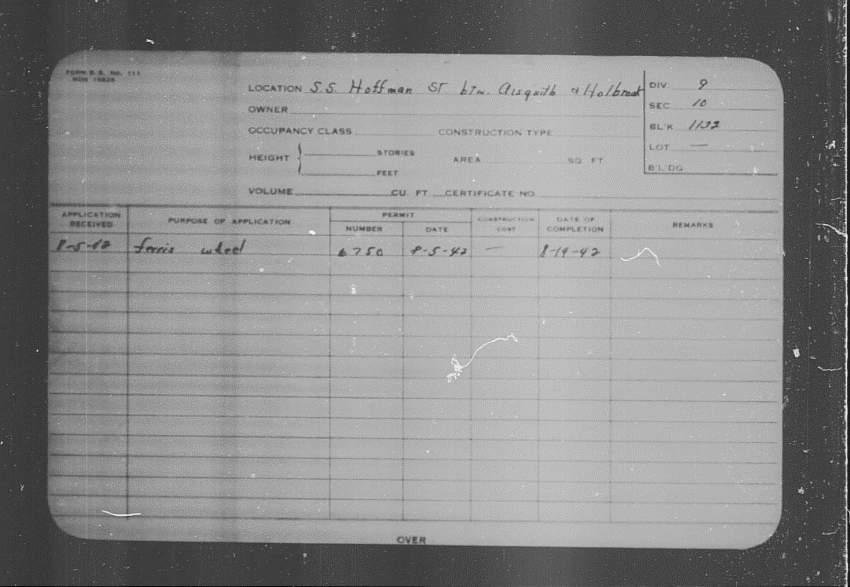 FORM B. E. No. 111
LOCATION S.S. Hoffman ST btw. Aisquith & Holbrook
DIV. 9
OWNER
SEC 10
OCCUPANCY CLASS CONSTRUCTION TYPE
BL'K 1122
HEIGHT STORIES
FEET
AREA SQ FT
LOT —
BLDG
VOLUME CU. FT. CERTIFICATE NO.
APPLICATION RECEIVED PURPOSE OF APPLICATION PERMIT NUMBER DATE CONSTRUCTION COST DATE OF COMPLETION REMARKS
8-5-42 ferris wheel 6750 8-5-42 — 8-19-42
OVER